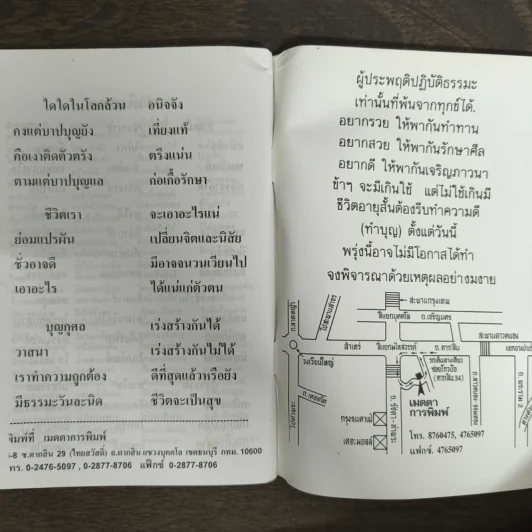 ใดใดในโลกล้วน อนิจจัง
คงแต่บาปบุญยัง เที่ยงแท้
คือเงาติดตัวตรัง ตรึงแน่น
ตามแต่บาปบุญแล ก่อเกื้อรักษา
ชีวิตเรา จะเอาอะไรแน่
ย่อมแปรผัน เปลี่ยนจิตและนิสัย
ชั่วอาจดี มีอาจจนวนเวียนไป
เอาอะไร ได้แน่แก่ตัวตน
บุญกุศล เร่งสร้างกันได้
วาสนา เร่งสร้างกันไม่ได้
เราทำความถูกต้อง ดีที่สุดแล้วหรือยัง
มีธรรมะวันละนิด ชีวิตจะเป็นสุข
พิมพ์ที่ เมตตาการพิมพ์
ซ.ตากสิน 29 (ไทยสวัสดิ์) ถ.ตากสิน แขวงบุคคโล เขตธนบุรี กทม. 10600
โทร. 0-2476-5097 , 0-2877-8706 แฟ็กซ์ 0-2877-8706
ผู้ประพฤติปฏิบัติธรรมะ
เท่านั้นที่พ้นจากทุกข์ได้.
อยากรวย ให้พากันทำทาน
อยากสวย ให้พากันรักษาศีล
อยากดี ให้พากันเจริญภาวนา
ข้าฯ จะมีเกินใช้ แต่ไม่ใช้เกินมี
ชีวิตอายุสั้นต้องรีบทำความดี
(ทำบุญ) ตั้งแต่วันนี้
พรุ่งนี้อาจไม่มีโอกาสได้ทำ
จงพิจารณาด้วยเหตุผลอย่างมงาย
สะพานกรุงเทพ
ถ.เจริญนคร
สำเหร่
ถ.ตากสิน
วงเวียนใหญ่
เมตตา
การพิมพ์
โทร. 8760475, 4765097
แฟกซ์. 4765097